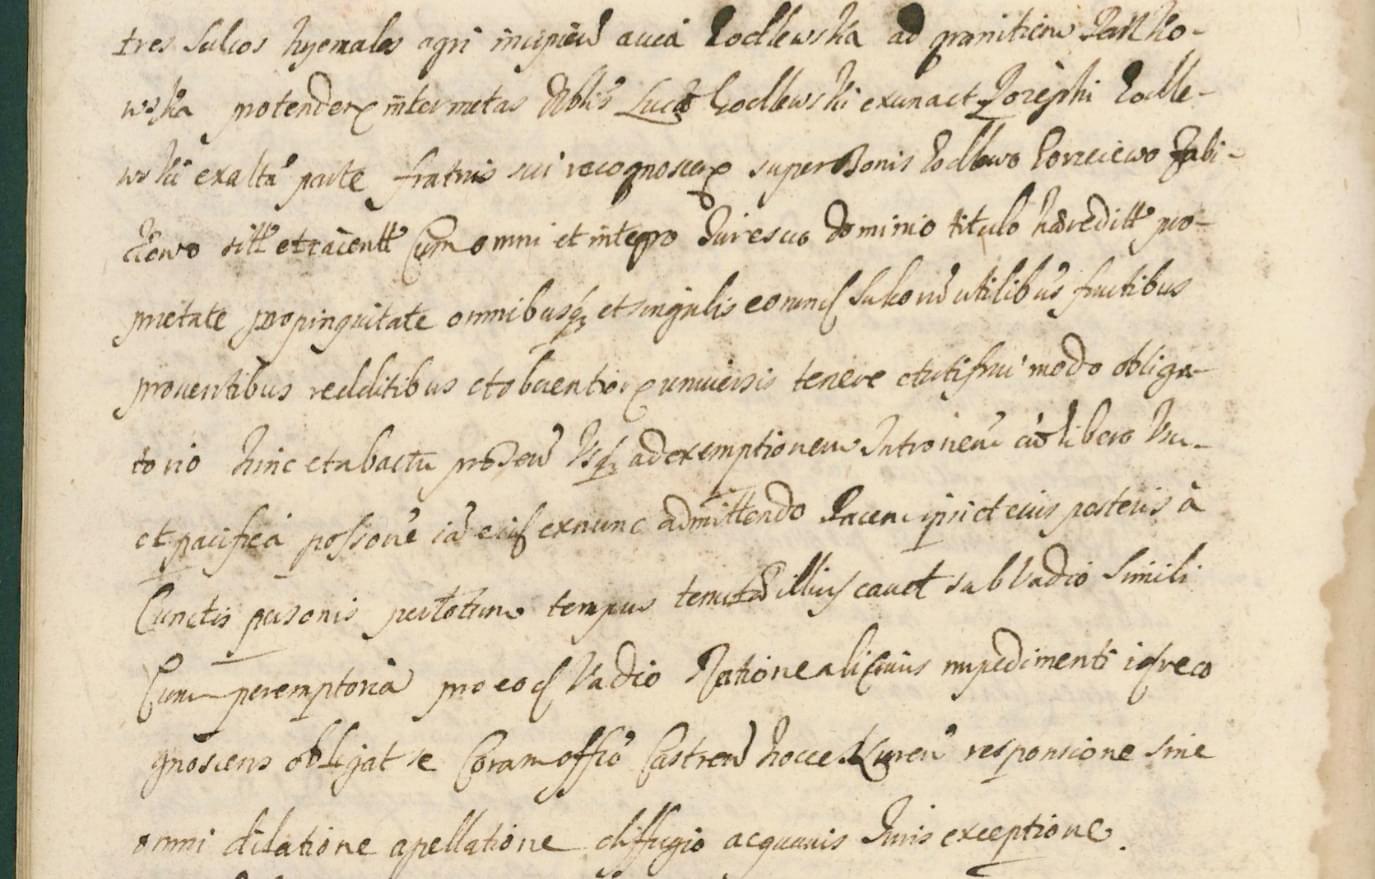 tres sulcos hyemales agri incipien a via Godlewska ad granitiem Jank̃o-
wska protenden inter metas Nblis Lucæ Godlewski ex una et Josephi Godle-
wski ex alta parte fratris sui recognoscen super Bonis Godlewo Gorzeiewo
sitt et iacentt Cum omni et integro Jure suo dominio titulo hæreditt pro-
prietate propinquitate omnibusq et singulis eorund sulcorū utilibus fructibus
prouentibus redditibus et obuention uniuersis tenere et utifrui modo obliga-
torio hinc et ab actu prõsen Usq ad exemptionem Intronem libero
et pacifica possone eius ex nunc admittendo Pacem ipsi et eius posteris à
Cunctis personis per totum tempus tenutæ illius cauet sub Vadio Simili
Cum peremptoria pro eod Vadio Ratione alicuius impedimenti isq reco
gnoscens obligat se Coram offo Castren hocce Nuren responsione sine
omni dilatione apellatione diffugio acquauis Juris exceptione.